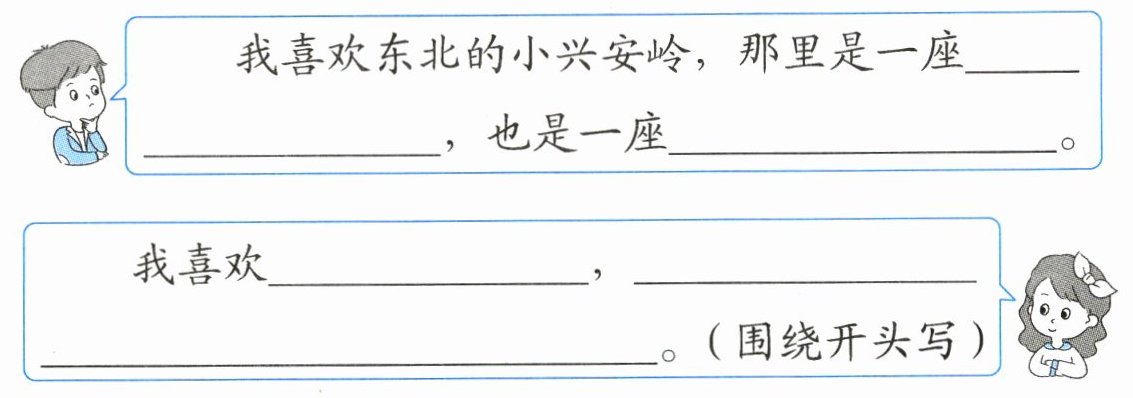 我喜欢东北的小兴安岭，那里是一座______
______，也是一座______。
我喜欢______，______
______。（围绕开头写）